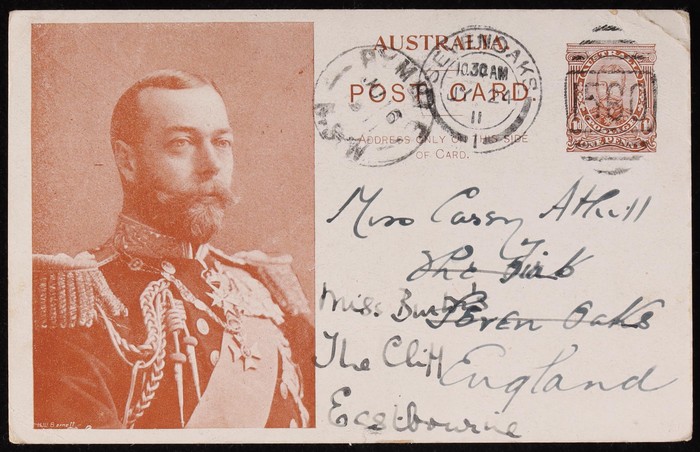 AUSTRALIA.
POST CARD
ADDRESS ONLY ON THIS SIDE
OF CARD.
SEVENOAKS
10.30 AM
11
1
PYMBLE
N.S.W
AUSTRALIA
ONE PENNY
Miss Cassy Athill
The Firs
Seven Oaks
England
Miss Burt's
The Cliff
Eastbourne